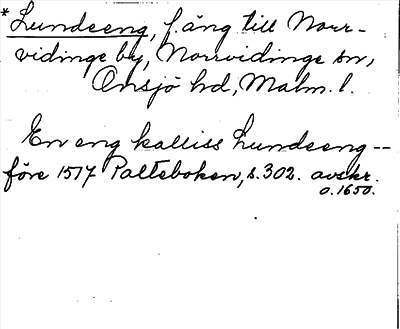 * Lundseng, f. äng till Norr-
vidinge by, Norrvidinge sn,
Onsjö hd, Malm. l.
En eng kalliss Lundseng --
före 1517 Palteboken, s. 302. avskr.
o. 1650.